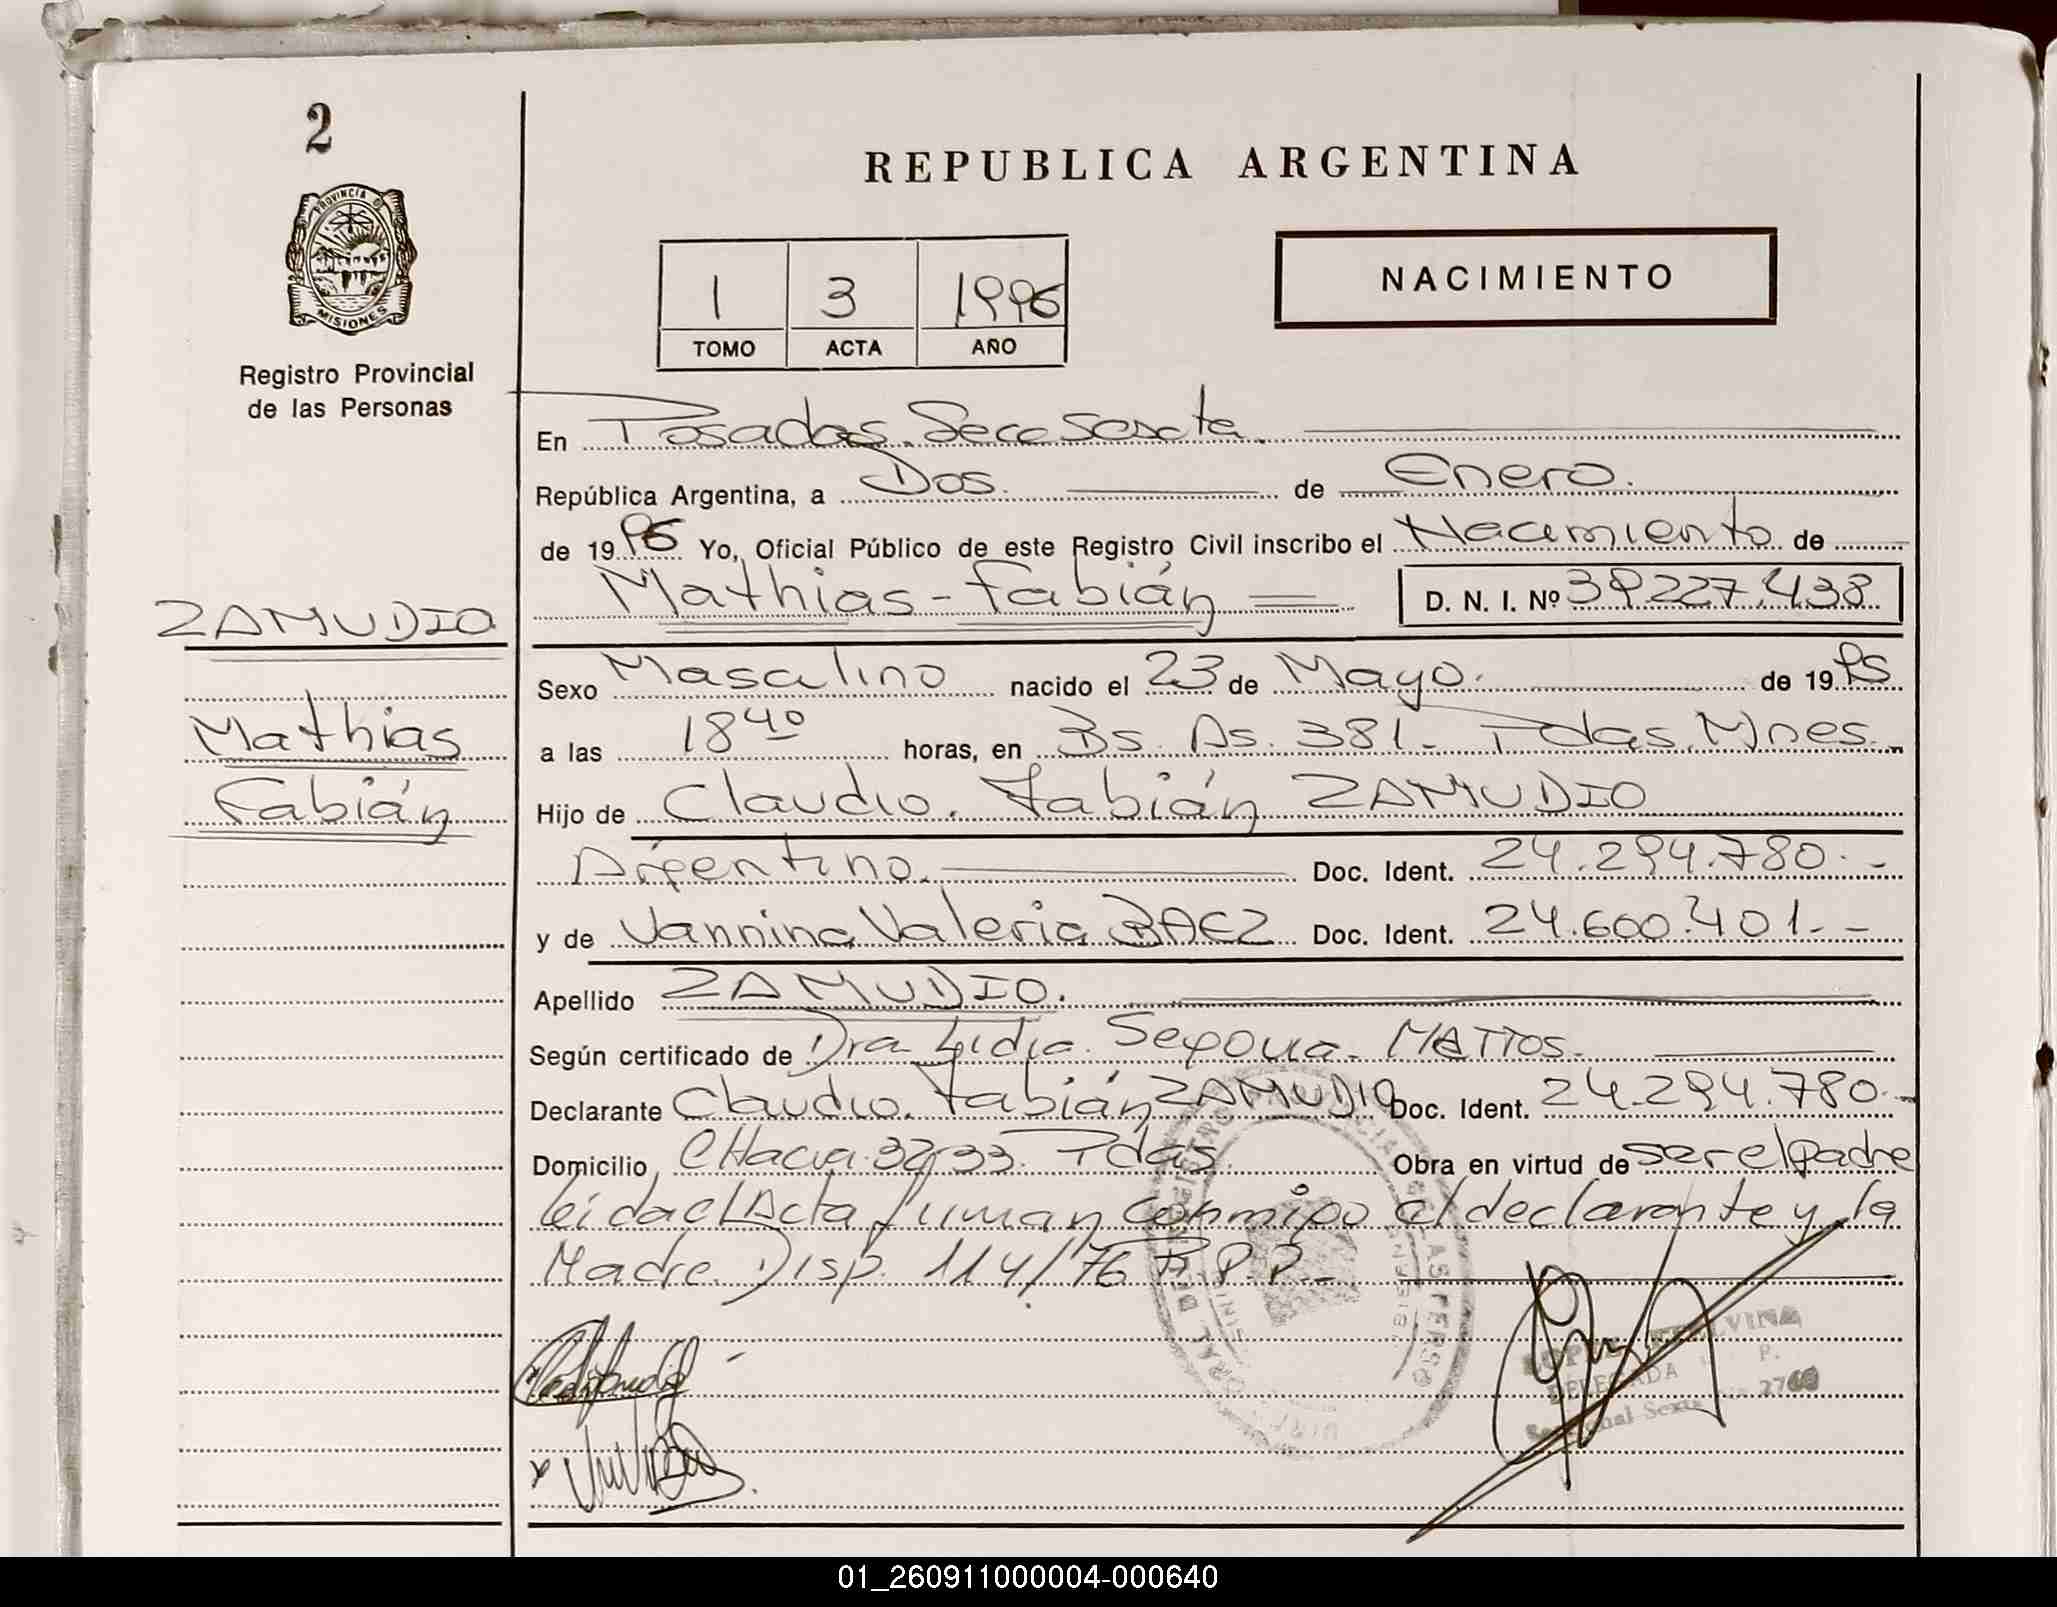 2
REPUBLICA ARGENTINA
PROVINCIA DE
MISIONES
Registro Provincial
de las Personas
1 3 1996
TOMO ACTA AÑO
NACIMIENTO
En Posadas. Secc Sexta.
República Argentina, a Dos. de Enero.
de 1996 Yo, Oficial Público de este Registro Civil inscribo el Nacimiento de
Mathias - Fabián D. N. I. Nº 39.227.438
ZAMUDIO
Mathias
Fabián
Sexo Masculino nacido el 23 de Mayo. de 1995
a las 18 40 horas, en Bs. As. 381- Pdas. Mnes.
Hijo de Claudio. Fabián ZAMUDIO
Argentino. Doc. Ident. 24.294.780.-
y de Vannina Valeria BAEZ Doc. Ident. 24.600.401.-
Apellido ZAMUDIO.
Según certificado de Dra Lidia. Segovia. MATTOS.
Declarante Claudio. Fabián ZAMUDIO Doc. Ident. 24.294.780.-
Domicilio, CHacra 32/33. Pdas. Obra en virtud de ser el padre
leida el Acta firman conmigo el declarante y la
Madre. Disp. 114/76 R.P.P.-
LOPEZ ETELVINA
DELEGADA P.
Seccional Sexta 2760
01_260911000004-000640